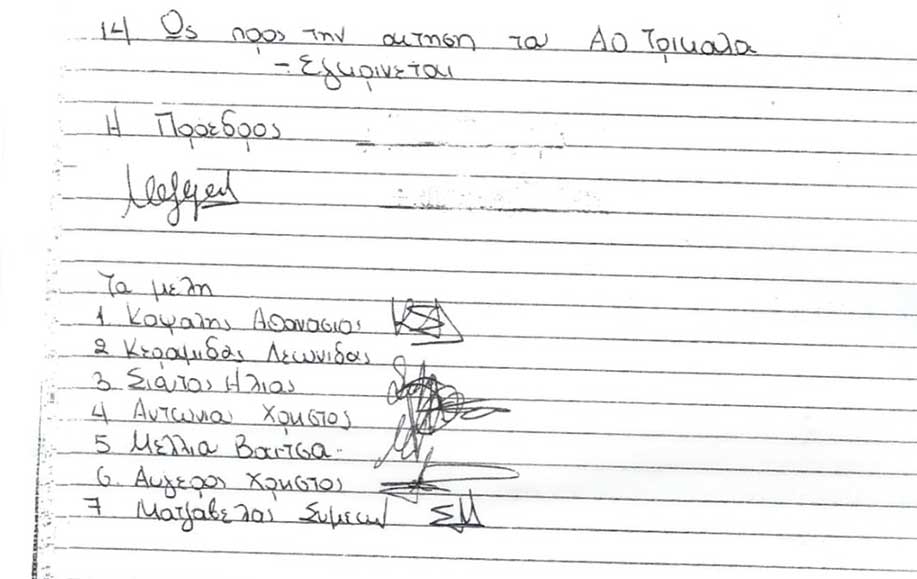 14 Ως προς την αιτηση του ΑΟ Τρικαλα
- Εγκρινεται
Η Προεδρος
Τα μελη
1 Κοψαλης Αθανασιος
2 Κεραμιδας Λεωνιδας
3 Σιατος Ηλιας
4 Αντωνια Χρηστος
5 Μελλια Βαιτσα
6. Αυγερος Χρηστος
7 Ματζαβελας Συμεων ΣΜ